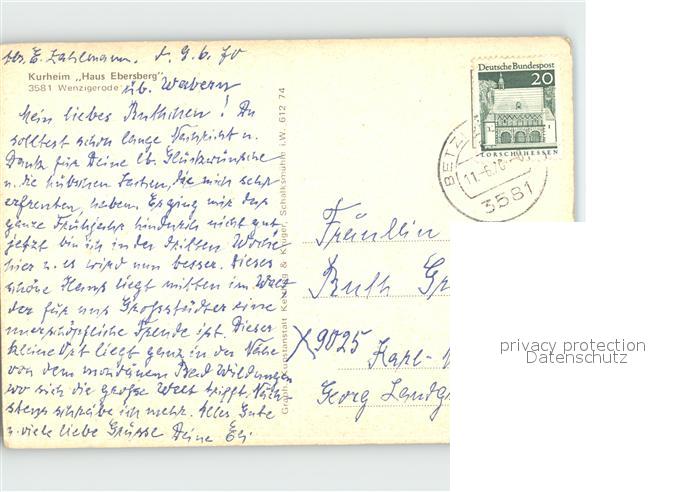 Abs. E. Zahlmann. d. 9.6.70
Kurheim „Haus Ebersberg“
3581 Wenzigerode
üb. Wabern
Mein liebes Ruthchen! Du
solltest schon lange Nachricht u.
Dank für Deine lb. Glückwünsche
u. die hübschen Karten, die mich sehr
erfreuten, haben. Es ging mir das
ganze Frühjahr hindurch nicht gut,
jetzt bin ich in der dritten Woche
hier u. es wird nun besser. Dieses
schöne Haus liegt mitten im Wald
der für uns Grossstädter eine
unerschöpfliche Freude ist. Dieser
kleine Ort liegt ganz in der Nähe
von dem mondänen Bad Wildungen
wo sich die große Welt trifft. Näch-
stens schreibe ich mehr. Alles Gute
u. viele liebe Grüsse Deine Eli
Graph. Kunstanstalt Kening & Krüger, Schalksmühle i.W. 612 74
Deutsche Bundespost
20
LORSCH/HESSEN
11.-6.70
3581
Fräulein
Ruth
9025 Karl-
Georg
privacy protection
Datenschutz